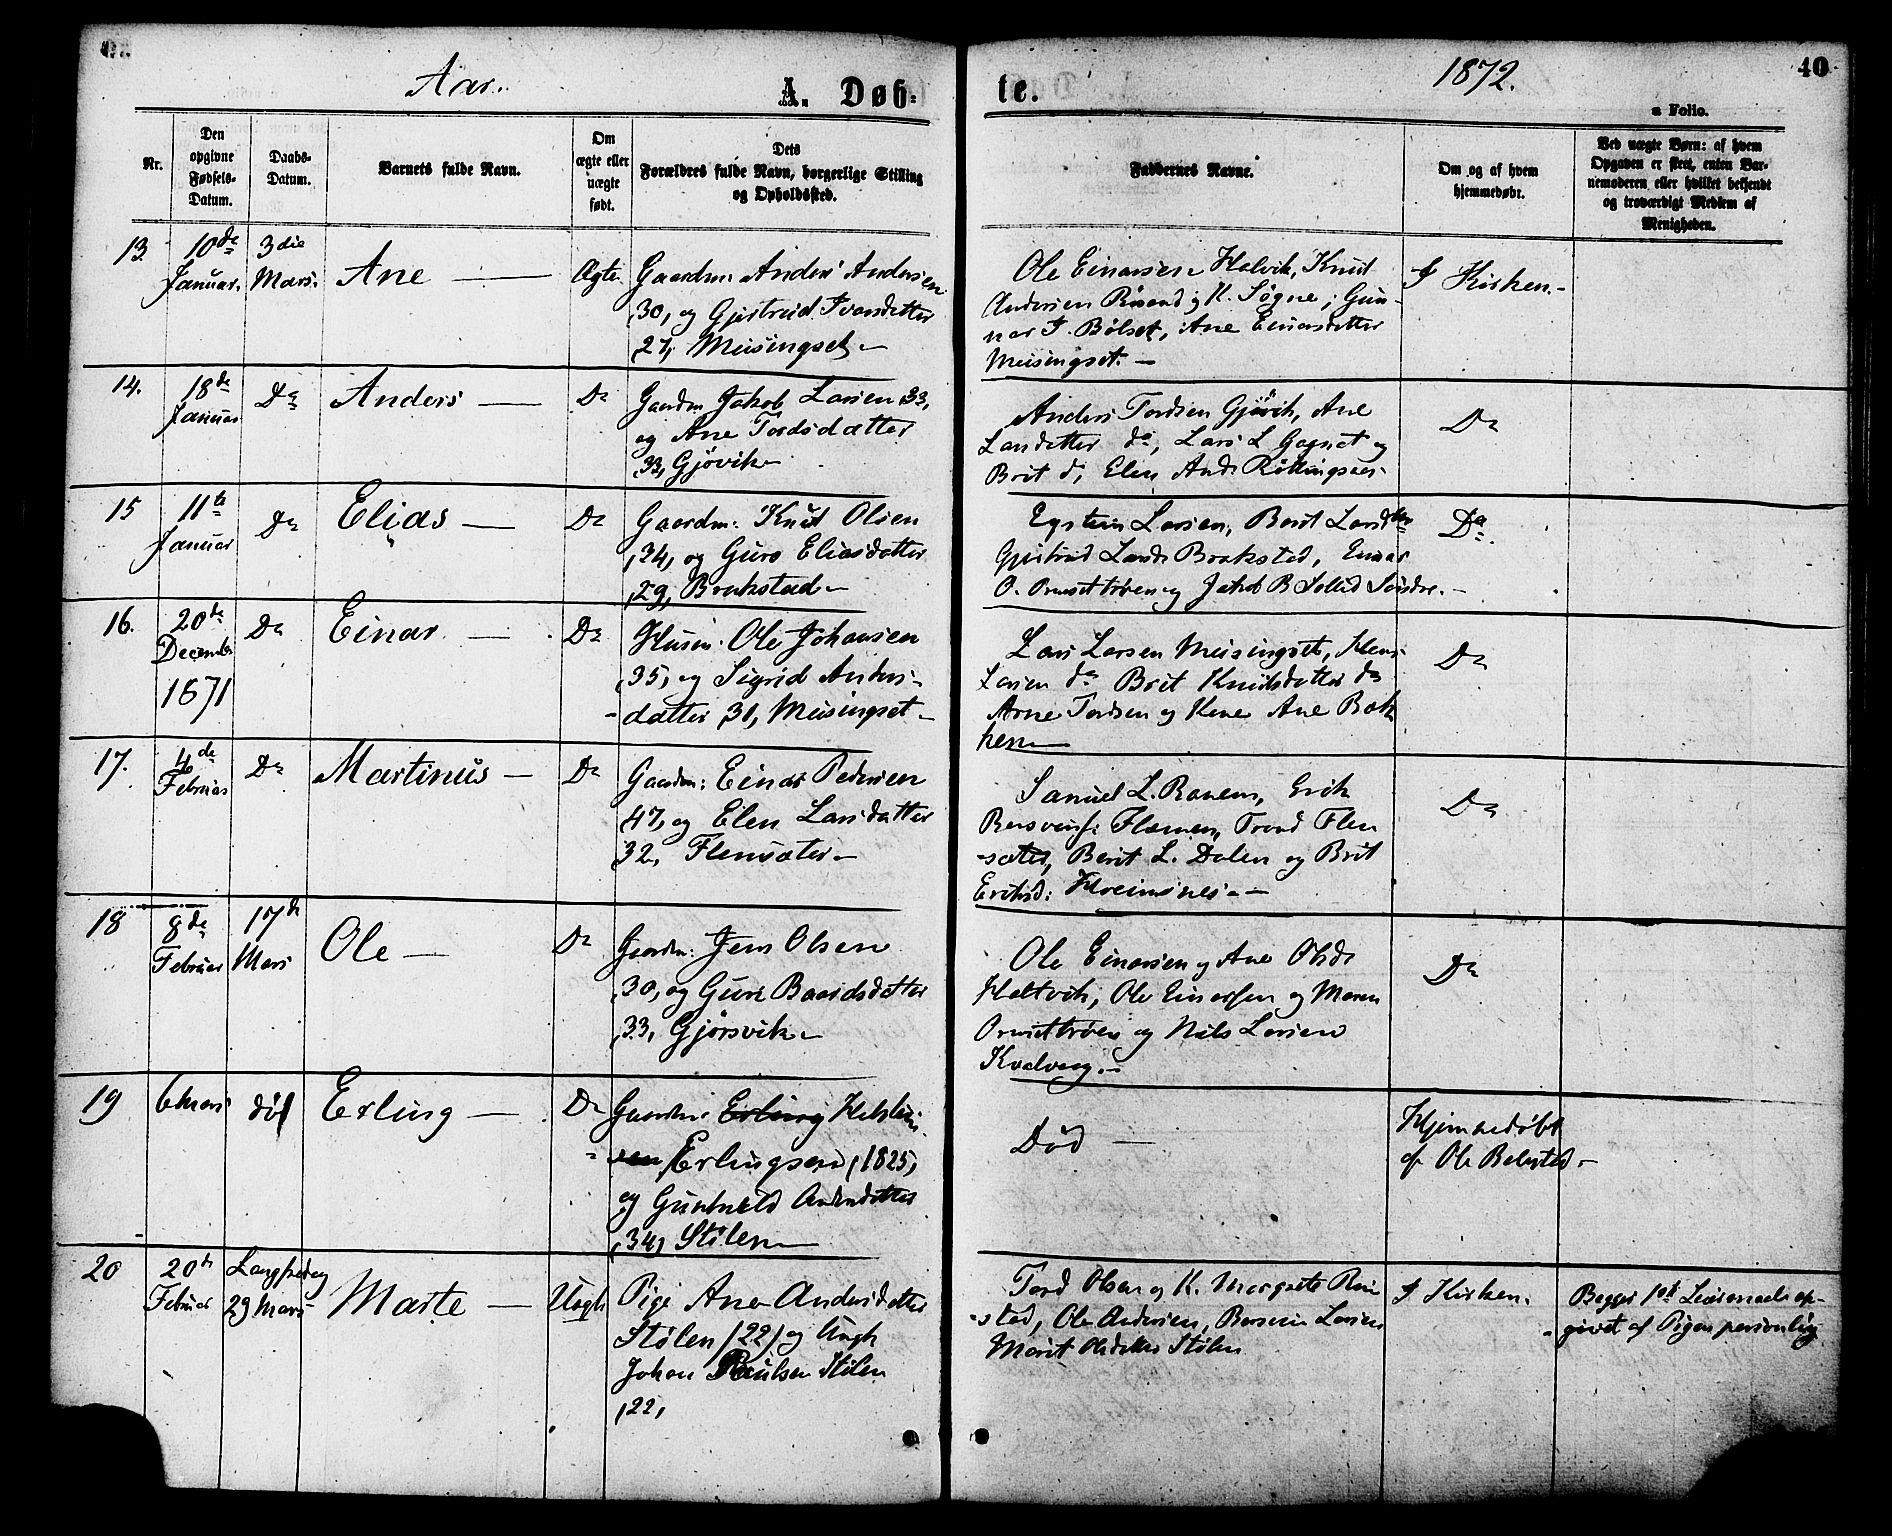 Aar. A. Døb-te. 1872. 40
a Folio.
Nr.
Den opgivne Fødsels-Datum.
Daabs-Datum.
Barnets fulde Navn.
Om ægte eller uægte født.
Dets Forældres fulde Navn, borgerlige Stilling og Opholdssted.
Faddernes Navne.
Om og af hvem hjemmedøbt.
Ved uægte Børn: af hvem Opgaven er skeet, enten Barnemoderen eller hvilket bekjendt og troværdigt Medlem af Menigheden.
13. 10de Januar. 3die Mars. Ane — Ægte
Gaardm: Anders Andersen
,30, og Gjertrud Ivarsdatter
,27, Meisingset —
Ole Einarsen Halvik, Knud
Andersen K. Søgne; Gun-
nar I. Bølset, Ane Einarsdatter
Meisingset. —
I Kirken. —
14. 18de Januar Do Anders — Do
Gaardm Jakob Larsen 33,
og Ane Tordsdatter
,33, Gjøvik —
Anders Tordsen Gjøvik, Ane
Larsdatter do, Lars L Gagnat og
Brit do, Elen Andsd Røttingsnes.
Do
15 11te Januar Do Elias — Do
Gaardm: Knud Olsen
,34, og Guro Eliasdatter
,29, Brakstad —
Eystein Larsen, Berit Larsdtr
Gjertrud Larsd Brakstad, Einar
O. Ormsettrøen og Jakob B Sollid Søndre. —
Do.
16. 20de December 1871 Do Einar — Do
Husm. Ole Johansen
,35, og Sigrid Anders-
datter 31, Meisingset —
Lars Larsen Meisingset, Hans
Larsen do Brit Knudsdatter do
Arne Tordsen og Kone Ane Bak-
ken —
Do
17. 4de Februar Do Martinus — Do
Gaardm: Einar Pedersen
,47, og Elen Larsdatter
32, Flemsæter —
Samuel L. Ranem, Erik
Flemmen, Trond Flem
-sæter, Berit L. Dalen og Brit
Eriksd: Hveimsnes. —
Do
18 8de Februar 17de Mars Ole — Do
Gaardm: Jens Olsen
,30, og Guri Baardsdatter
,33, Gjørsvik —
Ole Einarsen og Ane Olsdr
Haltvik, Ole Einarsen og Maren
Ormsettrøen og Nils Larsen
Kvalvaag. —
Do
19 6 Mars død Erling — Do
Gaardm:
Erlingsen, 1825,
og Gunhild Andersdatter
,34, Stølen —
Død —
Hjemmedøbt
af Ole Belsted. —
20 20de Februar Langfredag 29 Mars Marte — Uægte
Pige Ane Andersdatter
Stølen (22) og Ungk
Johan Paulsen Stølen
,22,
Tord Olsen og K. Margrete Rin-
-stad, Ole Andersen, Larsen
Marit Olsdatter Stølen
I Kirken.
Begges 1ste Leiermaal op-
givet af Pigen personlig